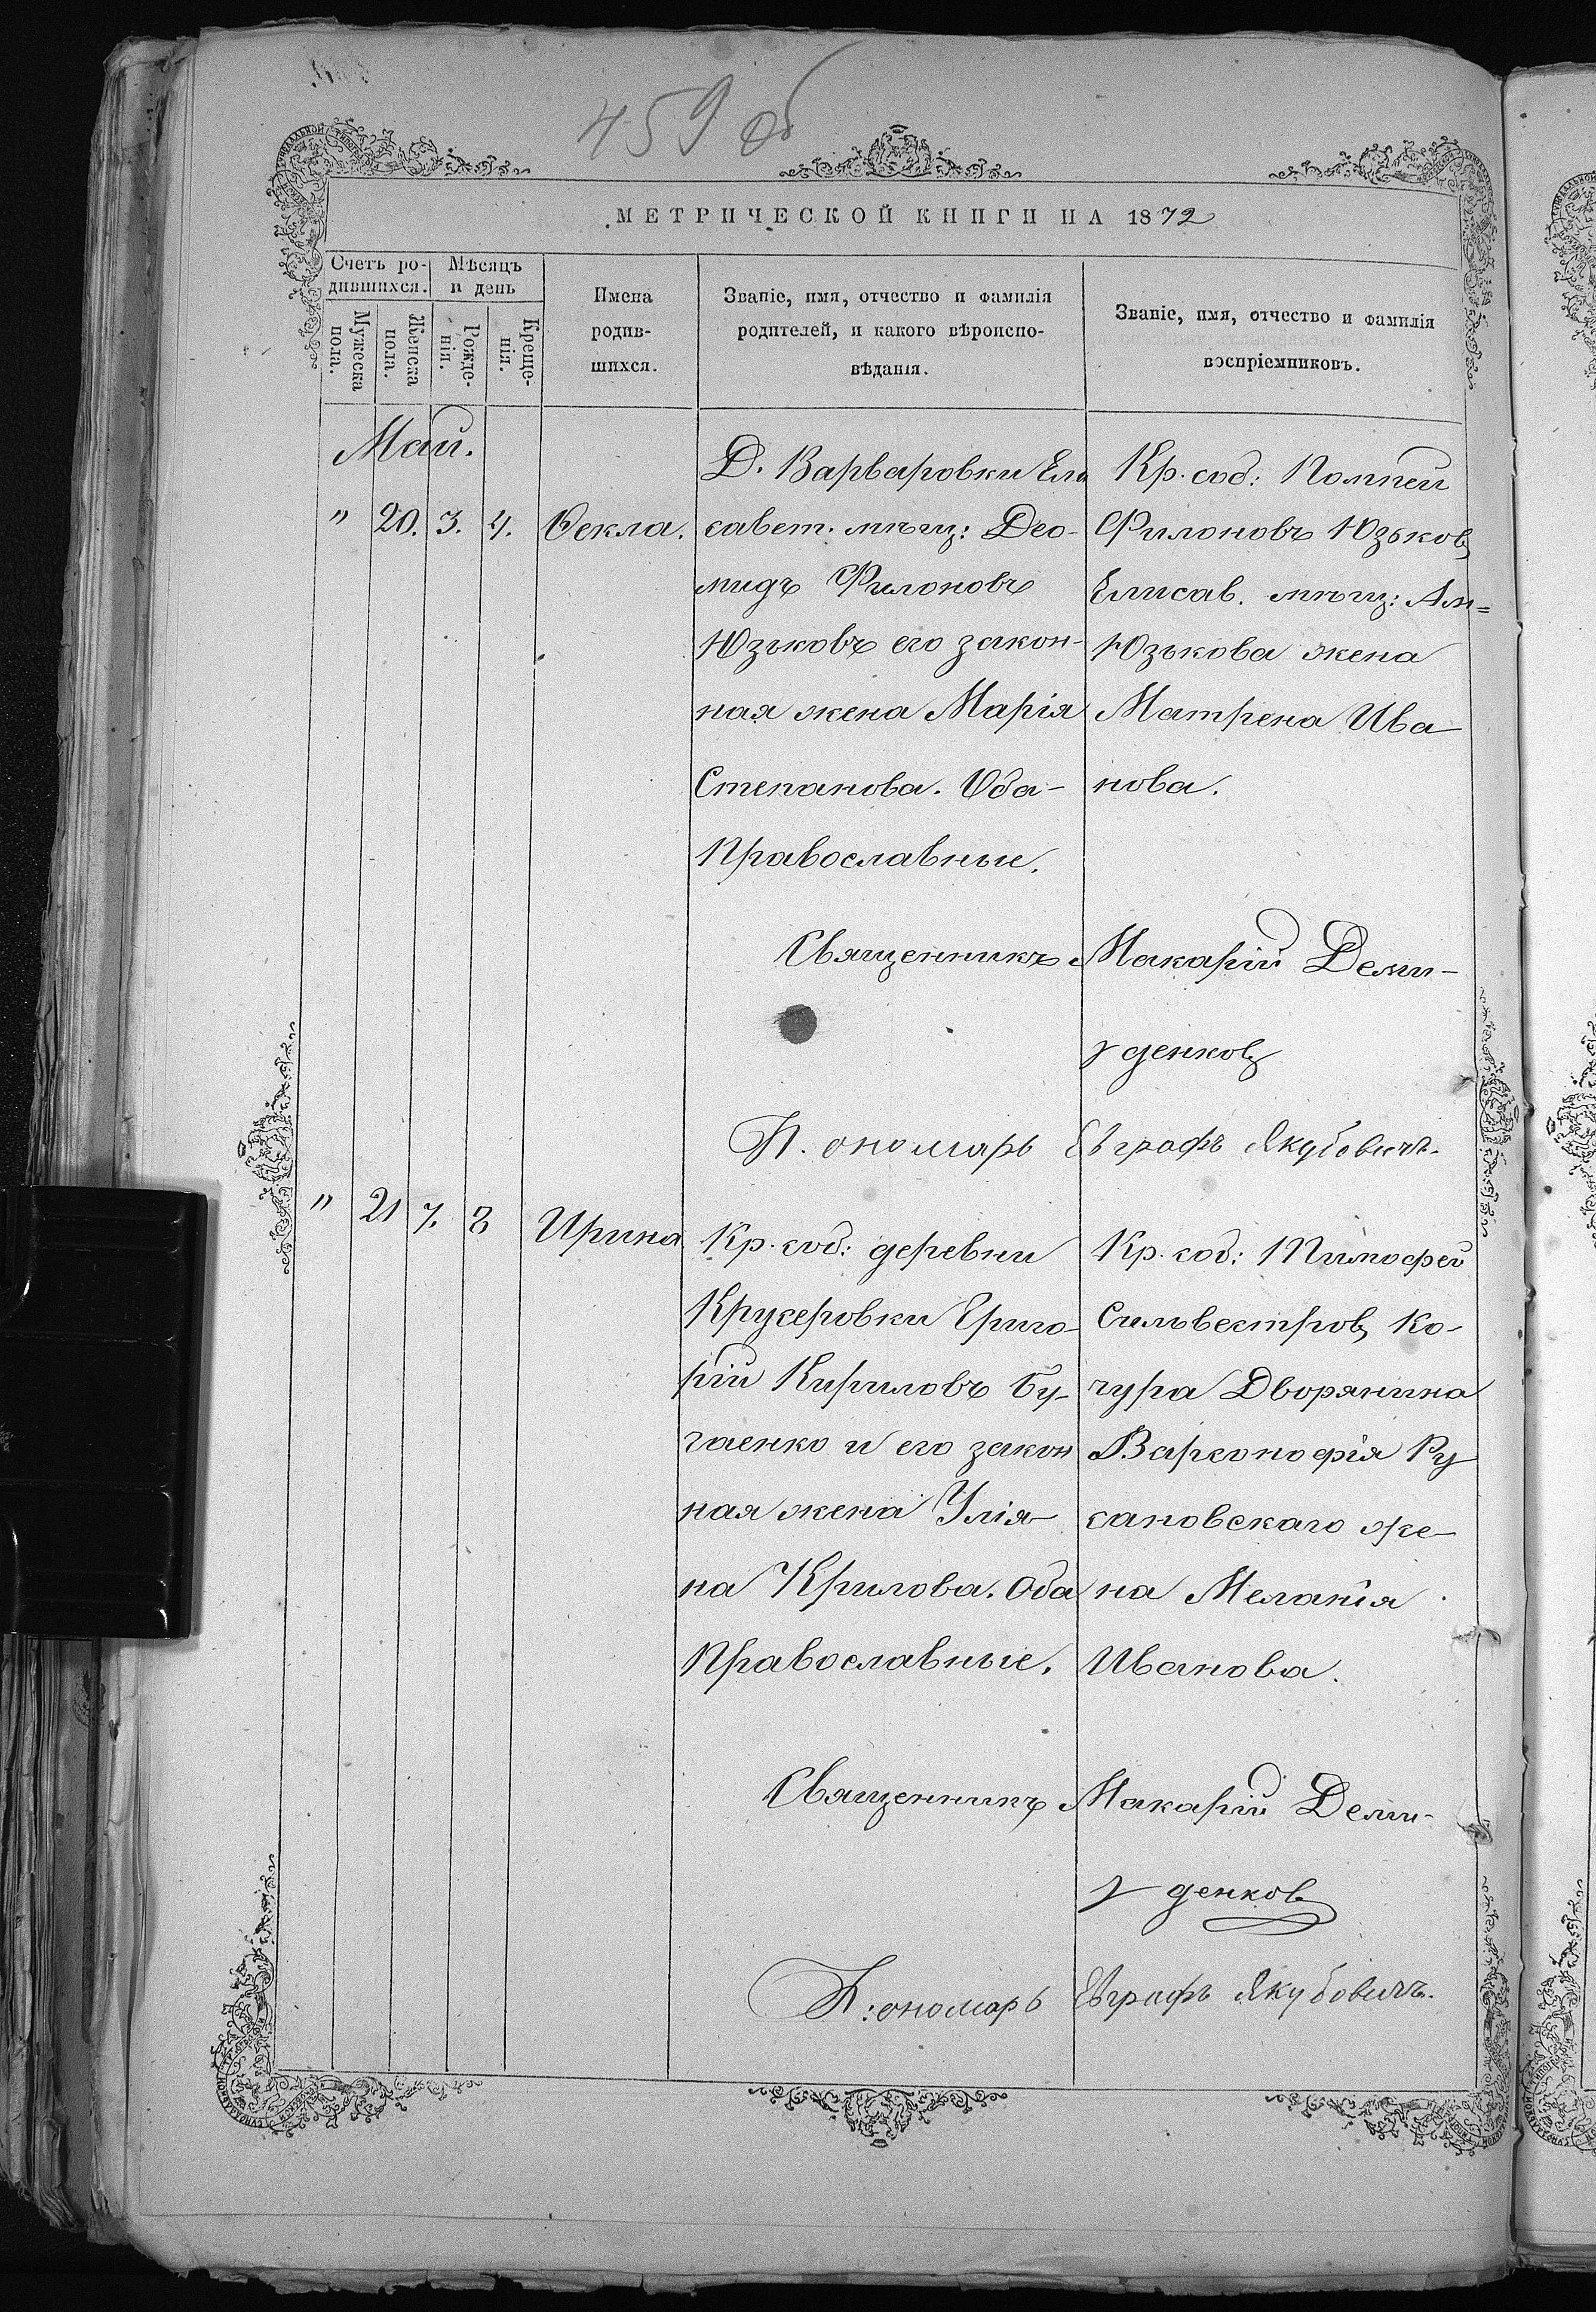 459 об
МЕТРИЧЕСКОЙ КНИГИ НА 1872
Счетъ ро-
дившихся.
Мѣсяцъ
и день
Мужеска
пола.
Женска
пола.
Рожде-
нія.
Креще-
нія.
Имена
родив-
шихся.
Званіе, имя, отчество и фамилія
родителей, и какого вѣроиспо-
вѣданія.
Званіе, имя, отчество и фамилія
воспріемниковъ.
Май.
" 20. 3. 4. Ѳекла.
Д. Варваровки Ели
савет. мѣщ: Део-
мидъ Филоновъ
Юзьковъ его закон-
ная жена Марія
Степанова. Оба-
Православные.
Кр. соб: Помпей
Филоновъ Юзьковъ
Елисав. мѣщ:
Юзькова жена
Матрена Ива
нова.
Священникъ Макарій Деми-
денковъ
П. ономарь Евграфъ Якубовичъ.
" 21 7. 8 Ирина
Кр. соб: деревни
Крусеровки Григо-
рій Кириловъ Бу-
гаенко и его закон
ная жена Улія-
на Крилова. Оба
Православные.
Кр. соб: Тимофей
Сильвестровъ Ко-
чура Дворянина
Варсонофія Ру
сановскаго же-
на Меланія
Иванова.
Священникъ Макарій Деми-
денковъ
П: ономарь Евграфъ Якубовичъ.